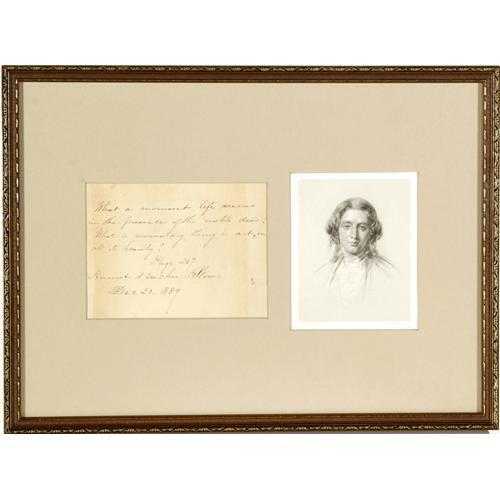 What a moment life seems
in the presence of the noble dead.
What a momentary thing is art, in
all its beauty!
Page 217
Harriet Beecher Stowe
Dec 30. 1889